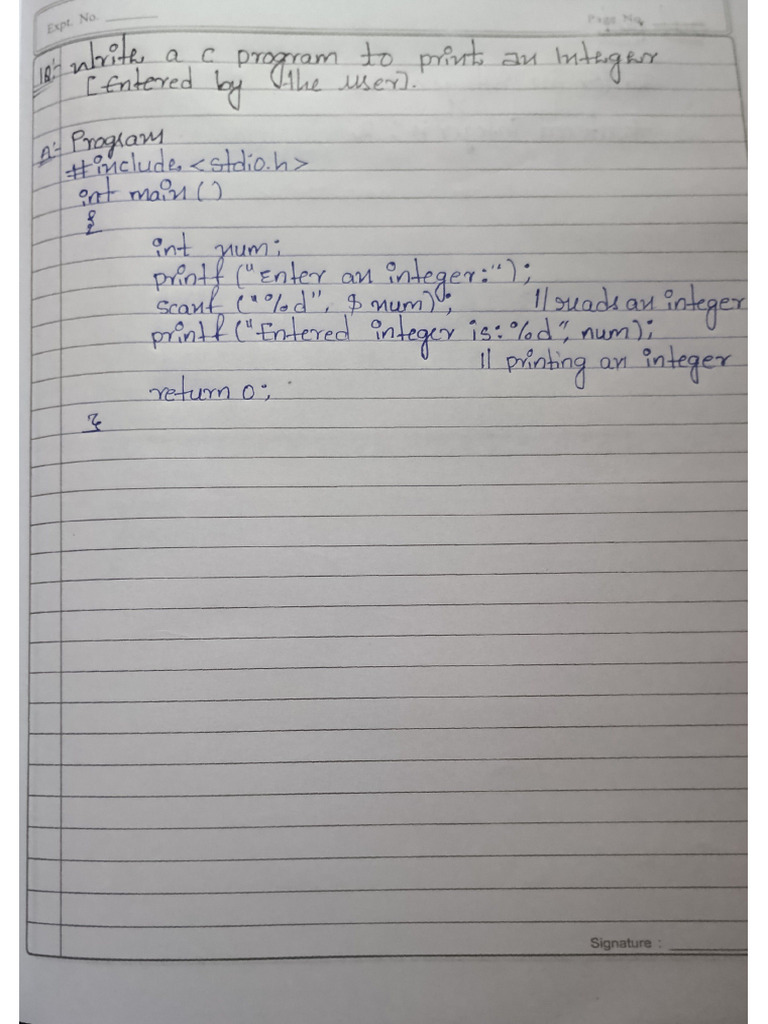 Expt. No.
Page No.
1Q:- Write a C program to print an Integer
[Entered by the user].
A:- Program
#include <stdio.h>
int main()
{
int num;
printf ("Enter an integer:");
scanf ("%d", $ num);   // reads an integer
printf ("Entered integer is: %d", num);
// printing an integer
return 0;
}
Signature :